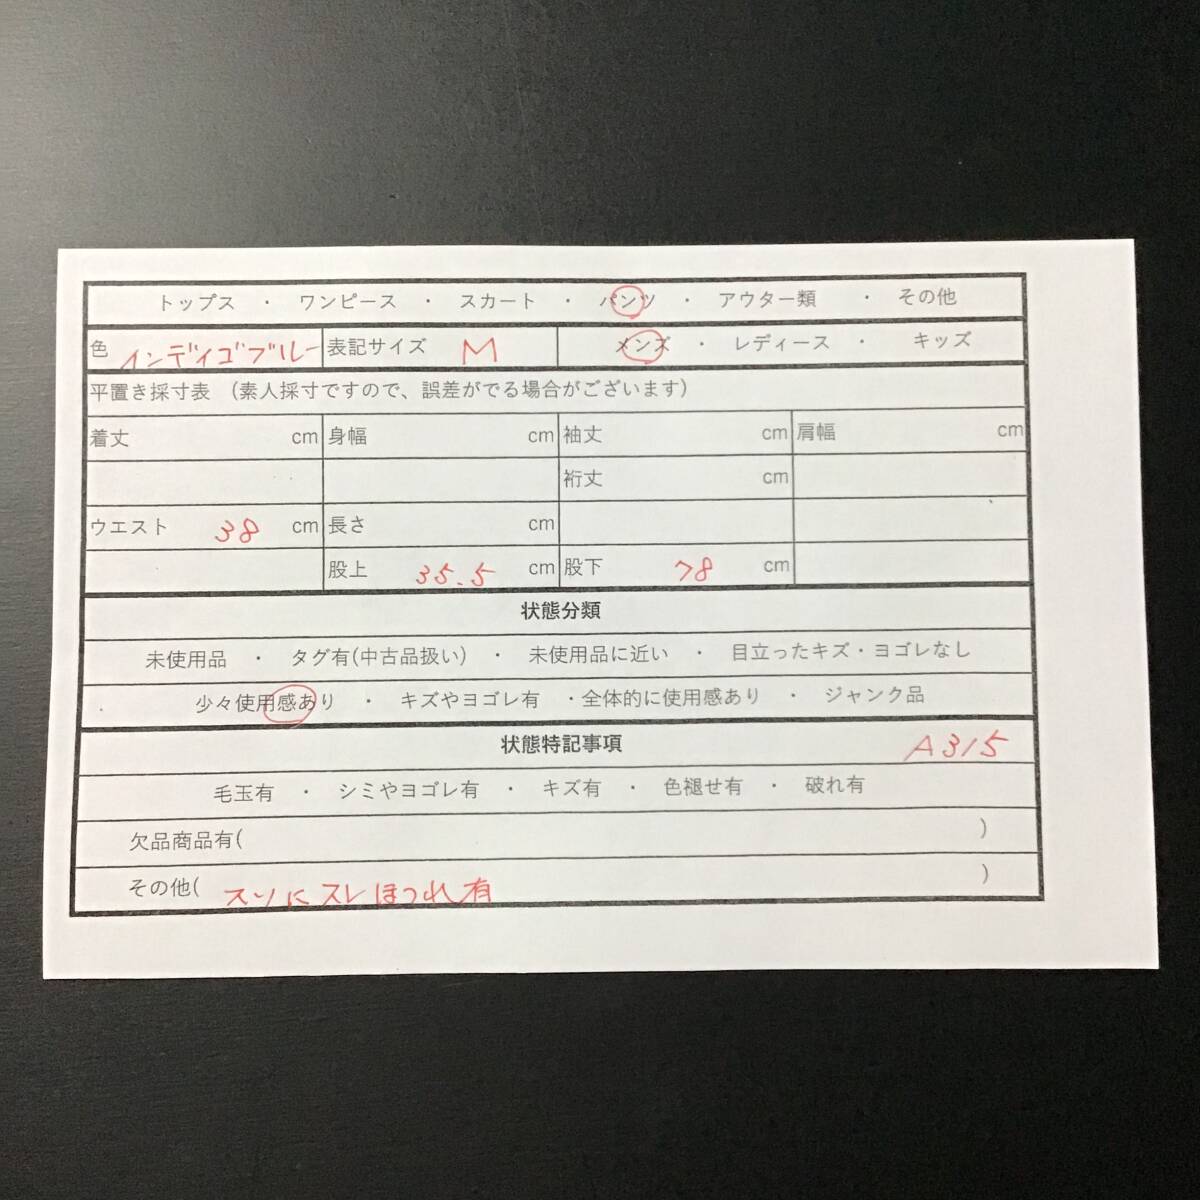 トップス ・ ワンピース ・ スカート ・ パンツ ・ アウター類 ・ その他
色 インディゴブルー 表記サイズ M メンズ ・ レディース ・ キッズ
平置き採寸表 （素人採寸ですので、誤差がでる場合がございます）
着丈 cm 身幅 cm 袖丈 cm 肩幅 cm
裄丈 cm
ウエスト 38 cm 長さ cm
股上 35.5 cm 股下 78 cm
状態分類
未使用品 ・ タグ有(中古品扱い) ・ 未使用品に近い ・ 目立ったキズ・ヨゴレなし
少々使用感あり ・ キズやヨゴレ有 ・全体的に使用感あり ・ ジャンク品
状態特記事項 A315
毛玉有 ・ シミやヨゴレ有 ・ キズ有 ・ 色褪せ有 ・ 破れ有
欠品商品有( )
その他( スソにスレほつれ有 )